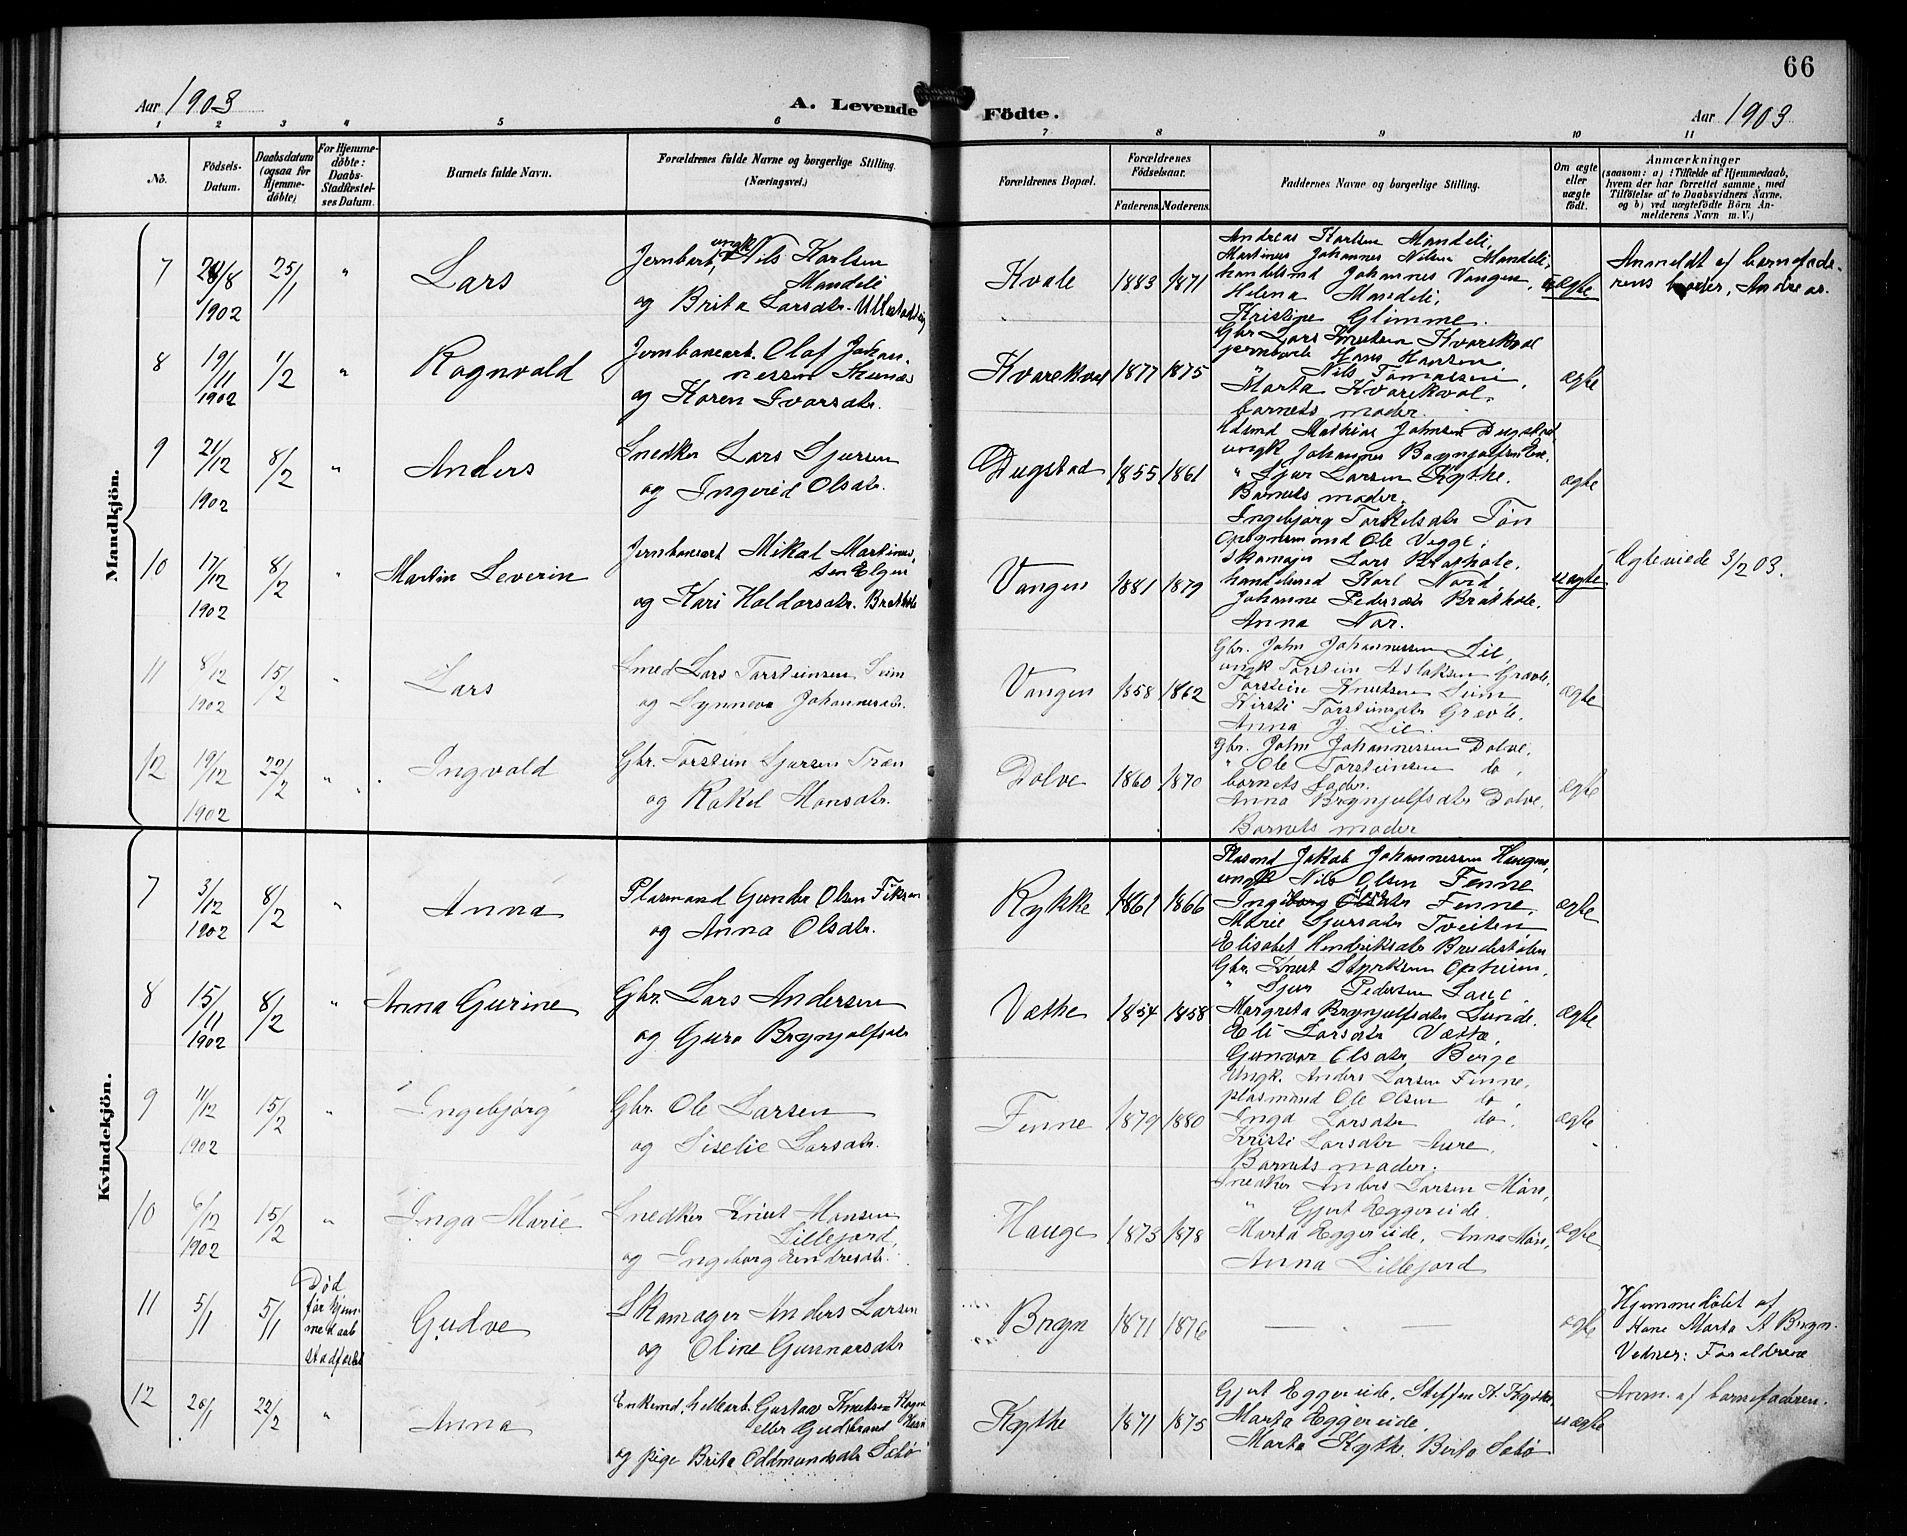 66
Aar 1903
A. Levende
Födte.
Aar 1903
1 2 3 4 5 6 7 8 9 10 11
No.
Födsels-Datum.
Daabsdatum (ogsaa for Hjemmedöbte)
For Hjemmedöbte: Daabs-Stadfæstelses Datum.
Barnets fulde Navn.
Forældrenes fulde Navne og borgerlige Stilling. (Næringsvei.)
Forældrenes Bopæl.
Forældrenes Födselsaar.
Faderens. Moderens.
Faddernes Navne og borgerlige Stilling.
Om ægte eller uægte født.
Anmærkninger
(saasom: a) i Tilfælde af Hjemmedaab,
hvem der har forrettet samme, med
Tilföielse af to Daabsvidners Navne,
og b) ved uægtefödte Börn An-
melderens Navn m. V.)
Mandkjön.
7
28/8 1902
25/1
"
Lars
Jernbarb. ungk Nils Karlsen
Mandeli
og Brita Larsdtr. Ullestadteig
Kvale
1883 1871
Andreas Karlsen Mandeli,
Martinus Johannes Nilsen Mandeli,
handelsmd Johannes Vangen,
Helena Mandeli,
Kristine Glimme.
uægte
Anmeldt af barnefade-
rens broder, Andreas.
8
19/11 1902
1/2
"
Ragnvald
Jernbanearb. Olaf Johan-
nessen
og Karen Ivarsdtr.
Kvarekval
1877 1875
Gbr Lars Knutsen Kvarekval
jernbarb Hans Hansen
" Nils Tomassen,
Marta Kvarekval,
barnets moder.
ægte
9
21/12 1902
8/2
"
Anders
Snedker Lars Sjursen
og Ingerid Olsdtr.
Dugstad
1855 1861
Mathias Johnsen Dugstad
ungk Johannes Brynjulfsen
" Sjur Larsen Kythe.
Barnets moder.
Ingebjørg Torkelsdtr Tøn
ægte
10
17/12 1902
8/2
"
Martin Severin
Jernbanearb Mikal Martinus-
sen Elgen
og Kari Haldorsdtr. Brathole
Vangen
1881 1879
Opsynsmand Ole Vegge,
Skomager Lars Brathole,
handelsmd Karl Nord
Johanne Pedersdtr Brathole,
Anna Nor.
uægte
Ægteviede 3/2 03.
11
8/12 1902
15/2
"
Lars
Smed Lars Torsteinsen Seim
og Synneva Johannesdtr.
Vangen
1858 1862
Gbr. John Johannessen Lie,
ungk Torstein Aslaksen Grøvle,
Torstein Knutsen Seim
Kirsti Torsteinsdtr Grøvle,
Anna J. Lie.
ægte
12
19/12 1902
22/2
"
Ingvald
Gbr. Torstein Sjursen Træn
og Rakel Monsdtr.
Dolve
1860 1870
Gbr. John Johannessen Dolve,
" Ole Torsteinsen do,
barnets fader.
Anna Brynjulfsdtr Dolve,
Barnets moder
ægte
Kvindekjön.
7
3/12 1902
8/2
"
Anna
Plasmand Gunder Olsen
og Anna Olsdtr.
Rykke
1861 1866
Plasmd Jakob Johannessen Haugen,
ungk Nils Olsen Fenne
Fenne,
Marie Sjursdtr Tveiten
Elisabet Hendriksdtr
ægte
8
15/11 1902
8/2
"
Anna Gurine
Gbr. Lars Andersen
og Guro Brynjulfsdtr
Væthe
1854 1858
Gbr. Knut Styrksen Opheim,
" Sjur Pedersen
Margreta Brynjulfsdtr Lunde.
Eli Larsdtr Vætte,
Gunvor Olsdtr Berge
ægte
9
11/12 1902
15/2
"
Ingebjørg
Gbr. Ole Larsen
og Siselie Larsdtr.
Fenne
1879 1880
Ungk. Anders Larsen Finne,
plasmand Ole Olsen do,
Inga Larsdtr do,
Kristi Larsdtr
Barnets moder.
ægte
10
6/12 1902
15/2
"
Inga Marie
Snedker Knut Hansen
Lillejord,
og Ingeborg Endresdtr.
Hauge
1873 1878
Snedker Anders Larsen
" Gjert Eggereide.
Marta Eggereide, Anna
Anna Lillejord
ægte
11
5/1
5/1
Død
før hjem-
medaab
Gudve
Skomager Anders Larsen
og Oline Gunnarsdtr
Bryn
1871 1876
— " —
ægte
Hjemmedøbt af
Kone Marta A Bryn.
Vidner: Forældrene
12
20/1
22/2
"
Anna
Enkemd, Gustav Knutsen
eller Gudbrand
og pige Brita Oddmundsdtr Sæbø
Kythe
1871 1875
Gjert Eggereide, Steffen A. Kythe
Marta Eggereide,
Marta Kythe. Brita Sæbø
uægte
Anm. af barnefaderen.